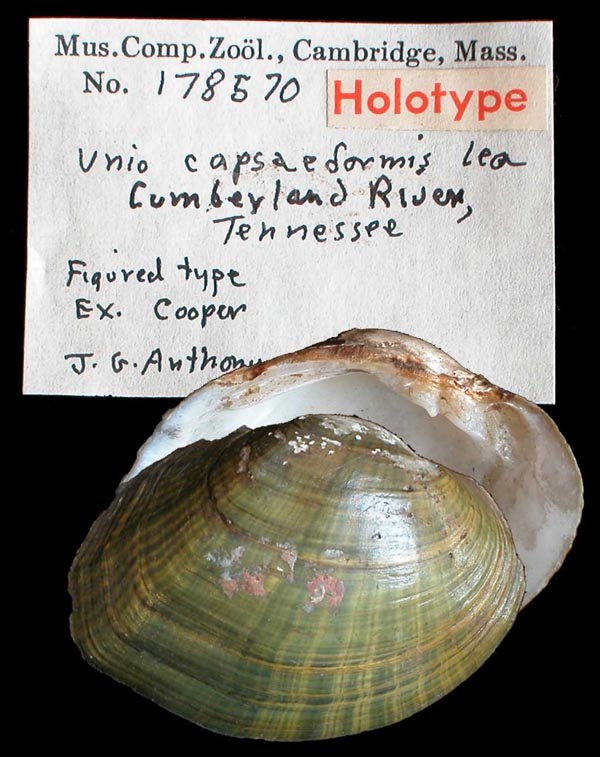 Mus.Comp.Zoöl., Cambridge, Mass.
No. 178570 Holotype
Unio capsaeformis Lea
Cumberland River,
Tennessee
Figured type
Ex. Cooper
J. G. Anthony